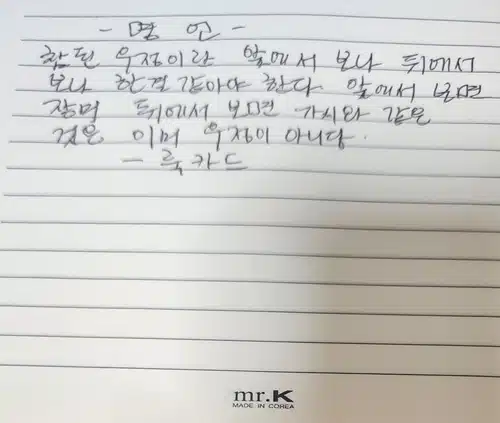 - 명 언 -
참된 우정이란 앞에서 보나 뒤에서
보나 한결같아야 한다. 앞에서 보면
장미 뒤에서 보면 가시와 같은
것은 이미 우정이 아니다.
- 룩카드
mr.K
MADE IN KOREA